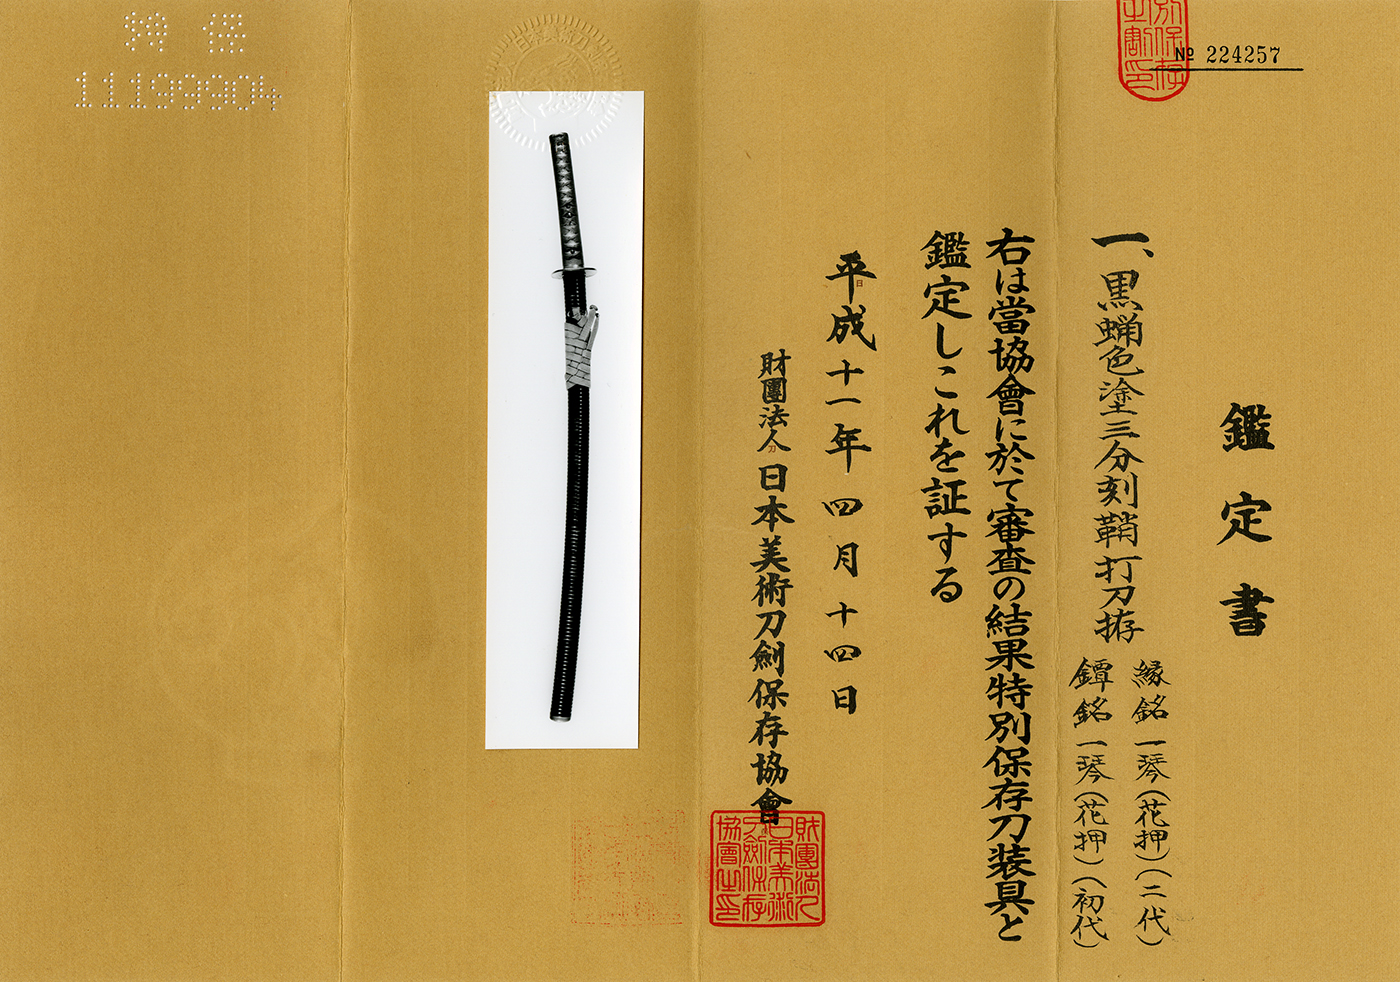 鑑定書
№ 224257
一、黒蝋色塗三分刻鞘打刀拵
縁銘 一琴(花押)(二代)
鐔銘 一琴(花押)(初代)
右は當協會に於て審査の結果特別保存刀装具と
鑑定しこれを証する
平成十一年四月十四日
財團法人 日本美術刀劍保存協會
財團法人
日本美術
刀劍保存
協會之印
特保
11199904